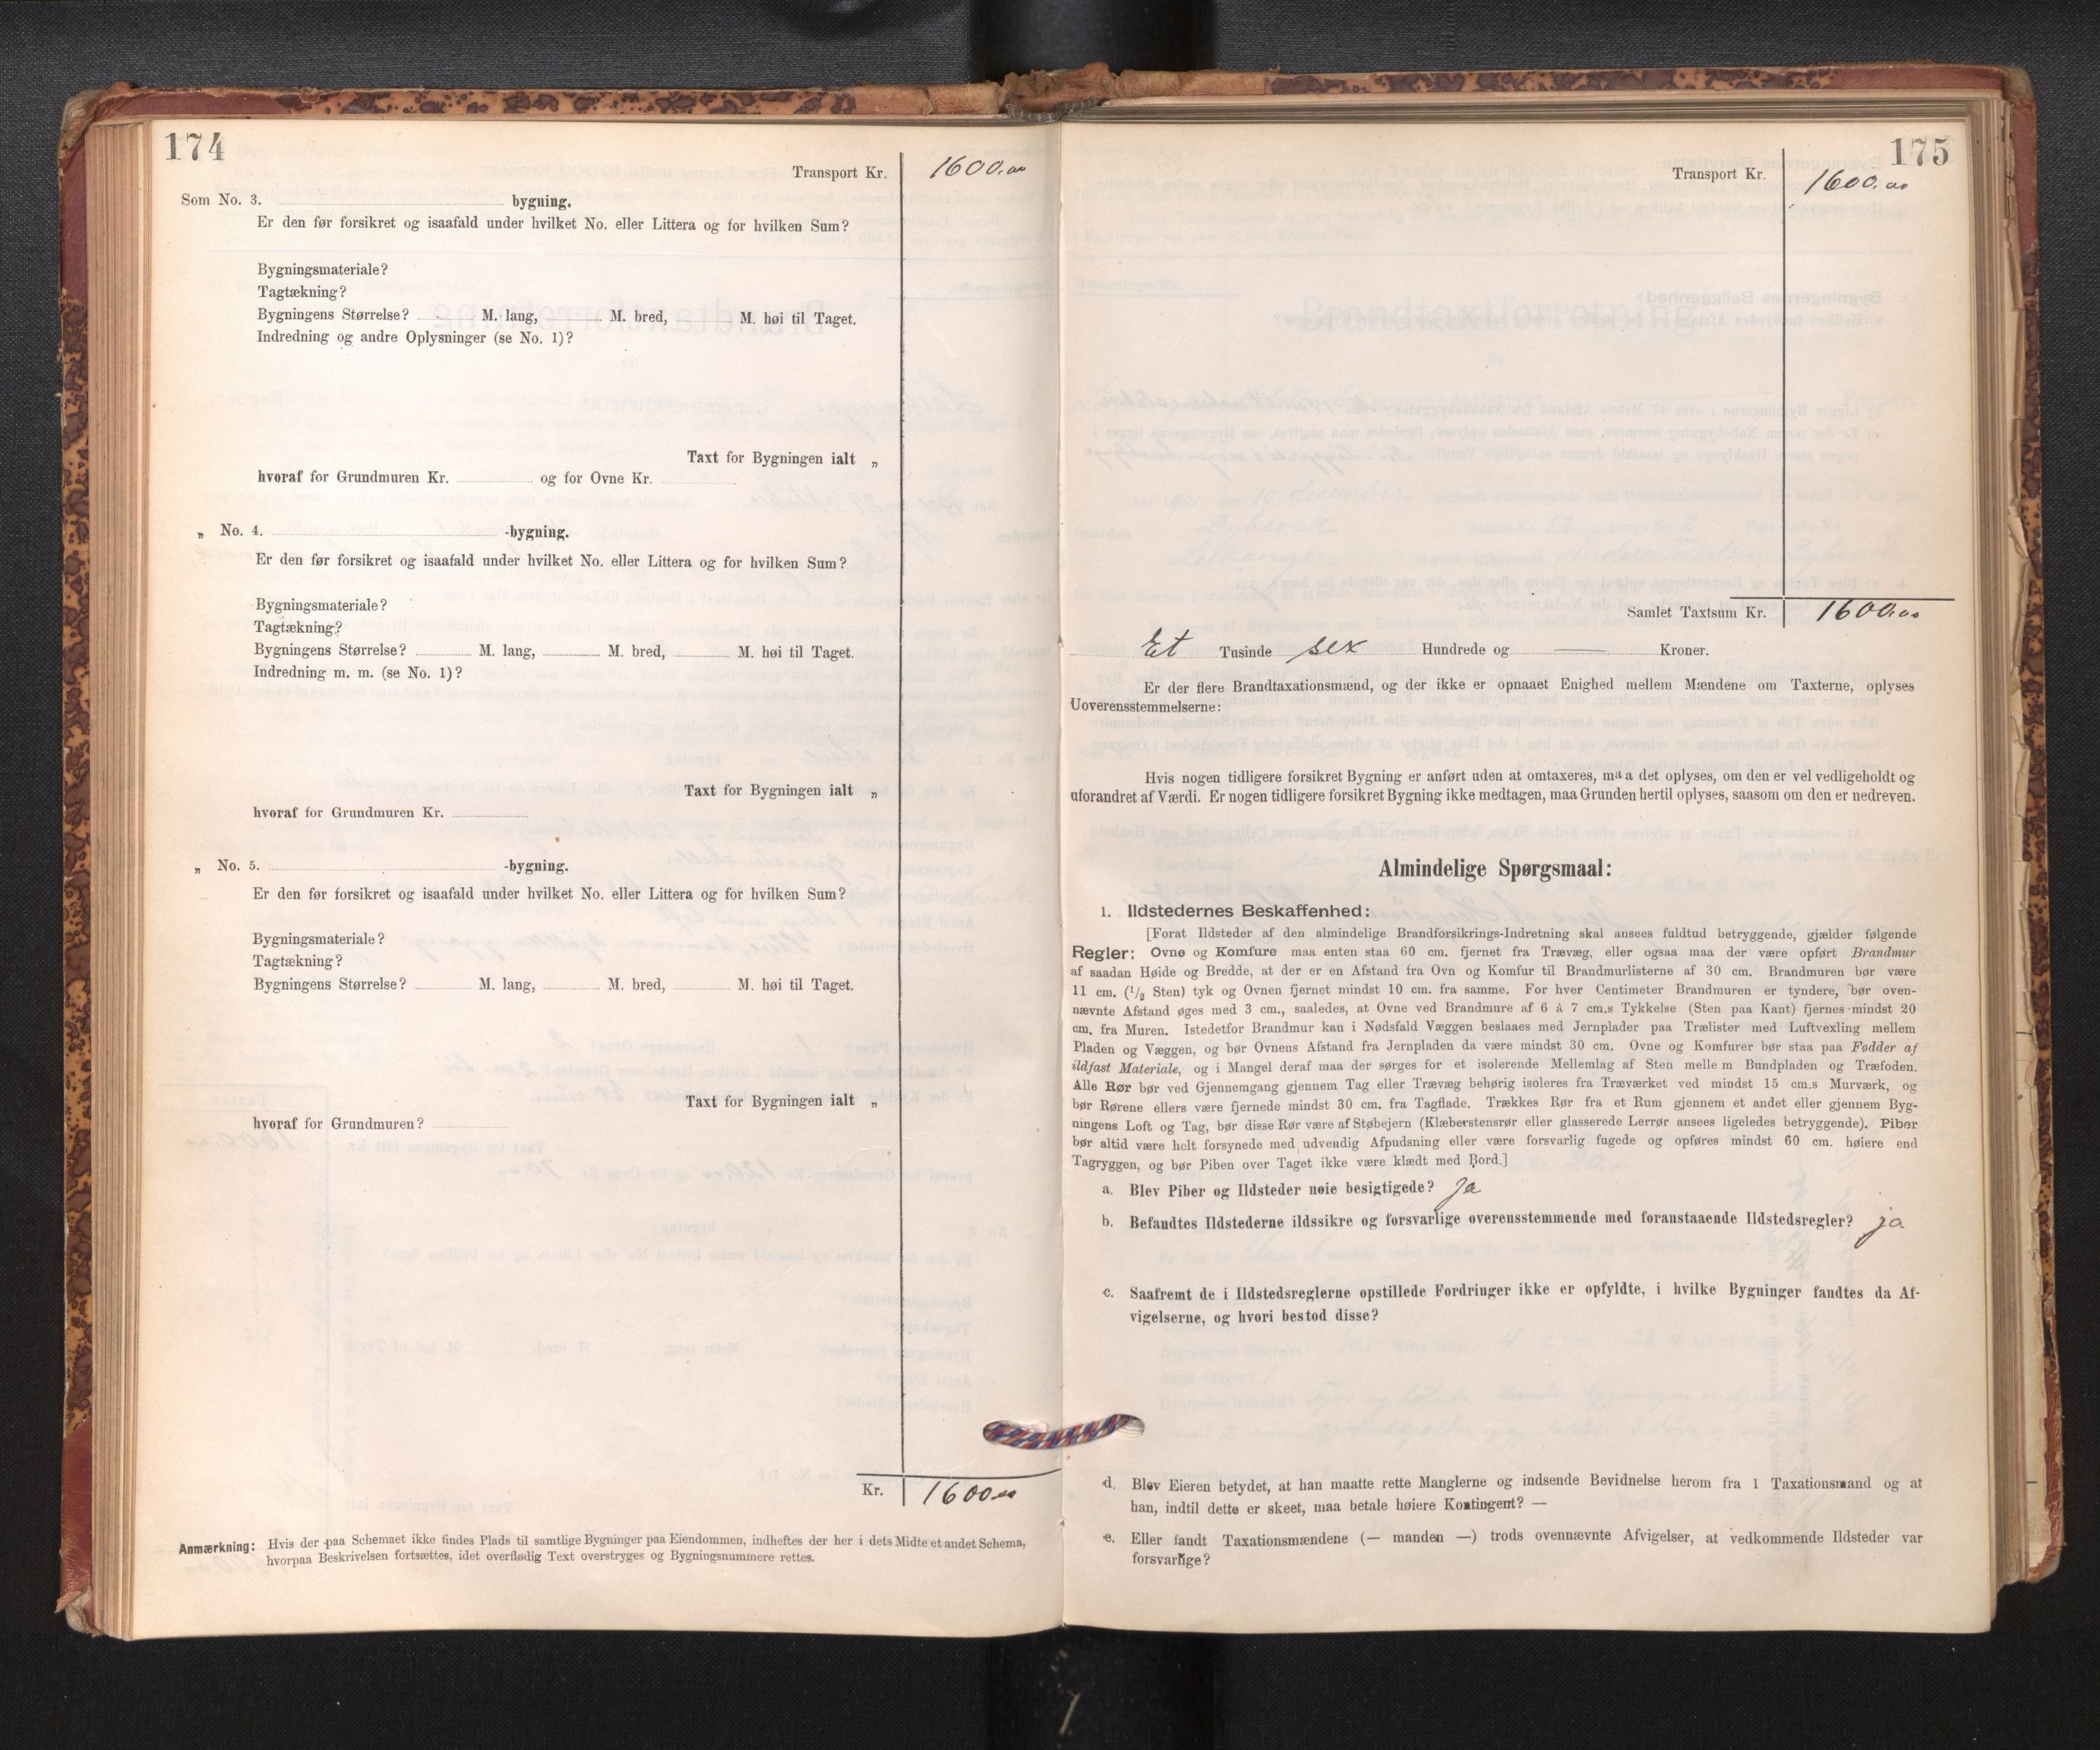 174
Transport Kr. 1600.00
Som No. 3. bygning.
Er den før forsikret og isaafald under hvilket No. eller Littera og for hvilken Sum?
Bygningsmateriale?
Tagtækning?
Bygningens Størrelse? M. lang, M. bred, M. høi til Taget.
Indredning og andre Oplysninger (se No. 1)?
Taxt for Bygningen ialt „
hvoraf for Grundmuren Kr. og for Ovne Kr.
„ No. 4. -bygning.
Er den før forsikret og isaafald under hvilket No. eller Littera og for hvilken Sum?
Bygningsmateriale?
Tagtækning?
Bygningens Størrelse? M. lang, M. bred, M. høi til Taget.
Indredning m. m. (se No. 1)?
Taxt for Bygningen ialt „
hvoraf for Grundmuren Kr.
„ No. 5. -bygning.
Er den før forsikret og isaafald under hvilket No. eller Littera og for hvilken Sum?
Bygningsmateriale?
Tagtækning?
Bygningens Størrelse? M. lang, M. bred, M. høi til Taget.
Taxt for Bygningen ialt „
hvoraf for Grundmuren?
Kr. 1600.00
Anmærkning: Hvis der paa Schemaet ikke findes Plads til samtlige Bygninger paa Eiendommen, indheftes der her i dets Midte et andet Schema,
hvorpaa Beskrivelsen fortsættes, idet overflødig Text overstryges og Bygningsnummere rettes.
175
Transport Kr. 1600.00
Samlet Taxtsum Kr. 1600.00
Et Tusinde sex Hundrede og — Kroner.
Er der flere Brandtaxationsmænd, og der ikke er opnaaet Enighed mellem Mændene om Taxterne, oplyses
Uoverensstemmelserne:
Hvis nogen tidligere forsikret Bygning er anført uden at omtaxeres, maa det oplyses, om den er vel vedligeholdt og
uforandret af Værdi. Er nogen tidligere forsikret Bygning ikke medtagen, maa Grunden hertil oplyses, saasom om den er nedreven.
Almindelige Spørgsmaal:
1. Ildstedernes Beskaffenhed:
[Forat Ildsteder af den almindelige Brandforsikrings-Indretning skal ansees fuldtud betryggende, gjælder følgende
Regler: Ovne og Komfure maa enten staa 60 cm. fjernet fra Trævæg, eller ogsaa maa der være opført Brandmur
af saadan Høide og Bredde, at der er en Afstand fra Ovn og Komfur til Brandmurlisterne af 30 cm. Brandmuren bør være
11 cm. (1/2 Sten) tyk og Ovnen fjernet mindst 10 cm. fra samme. For hver Centimeter Brandmuren er tyndere, bør oven-
nævnte Afstand øges med 3 cm., saaledes, at Ovne ved Brandmure af 6 à 7 cm.s Tykkelse (Sten paa Kant) fjernes mindst 20
cm. fra Muren. Istedetfor Brandmur kan i Nødsfald Væggen beslaaes med Jernplader paa Trælister med Luftvexling mellem
Pladen og Væggen, og bør Ovnens Afstand fra Jernpladen da være mindst 30 cm. Ovne og Komfurer bør staa paa Fødder af
ildfast Materiale, og i Mangel deraf maa der sørges for et isolerende Mellemlag af Sten mellem Bundpladen og Træfoden.
Alle Rør bør ved Gjennemgang gjennem Tag eller Trævæg behørig isoleres fra Træværket ved mindst 15 cm.s Murværk, og
bør Rørene ellers være fjernede mindst 30 cm. fra Tagflade. Trækkes Rør fra et Rum gjennem et andet eller gjennem Byg-
ningens Loft og Tag, bør disse Rør være af Støbejern (Klæberstensrør eller glasserede Lerrør ansees ligeledes betryggende). Piber
bør altid være helt forsynede med udvendig Afpudsning eller være forsvarlig fugede og opføres mindst 60 cm. høiere end
Tagryggen, og bør Piben over Taget ikke være klædt med Bord.]
a. Blev Piber og Ildsteder nøie besigtigede? ja
b. Befandtes Ildstederne ildssikre og forsvarlige overensstemmende med foranstaaende Ildstedsregler? ja
c. Saafremt de i Ildstedsreglerne opstillede Fordringer ikke er opfyldte, i hvilke Bygninger fandtes da Af-
vigelserne, og hvori bestod disse?
d. Blev Eieren betydet, at han maatte rette Manglerne og indsende Bevidnelse herom fra 1 Taxationsmand og at
han, indtil dette er skeet, maa betale høiere Kontingent? —
e. Eller fandt Taxationsmændene (— manden —) trods ovennævnte Afvigelser, at vedkommende Ildsteder var
forsvarlige?